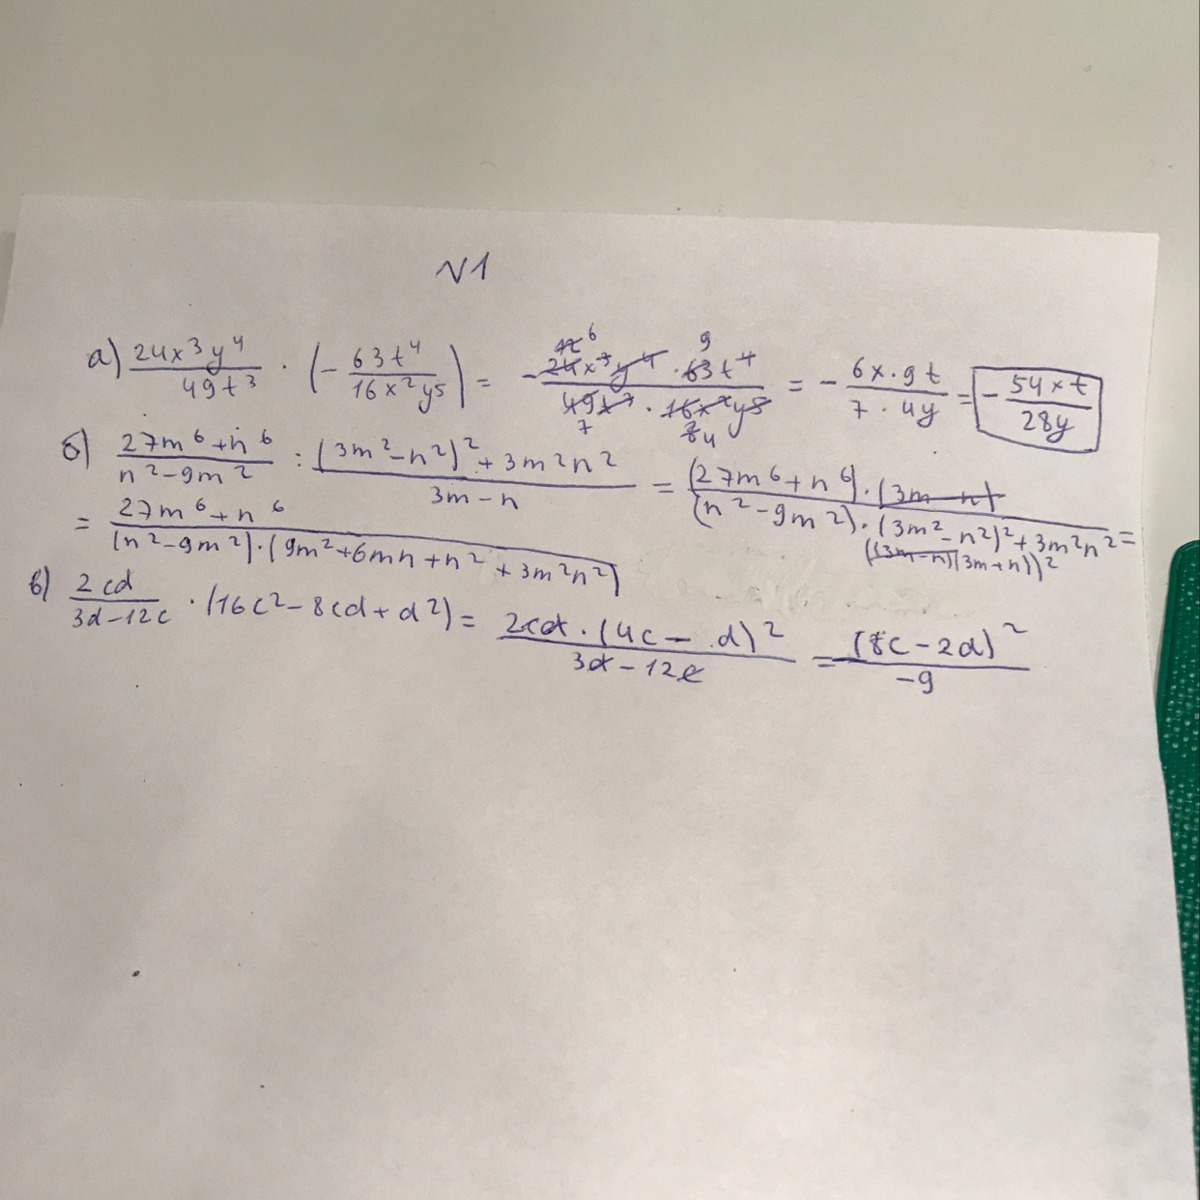 N1
а) 24x³y⁴/49t³ · (- 63t⁴/16x²y⁵) = - 24x³y⁴ · 63t⁴/49t³ · 16x²y⁵ 12 6 9 7 8 4 = - 6x · 9t/7 · 4y = - 54xt/28y
б) 27m⁶+n⁶/n²-9m² : (3m²-n²)²+3m²n²/3m-n = (27m⁶+n⁶) · (3m-n)/(n²-9m²) · (3m²-n²)²+3m²n² =
((3m-n)(3m+n))²
= 27m⁶+n⁶/(n²-9m²) · (9m²+6mn+n²+3m²n²)
в) 2cd/3d-12c · (16c²-8cd+d²) = 2cd · (4c-d)²/3d-12c = (8c-2d)²/-9